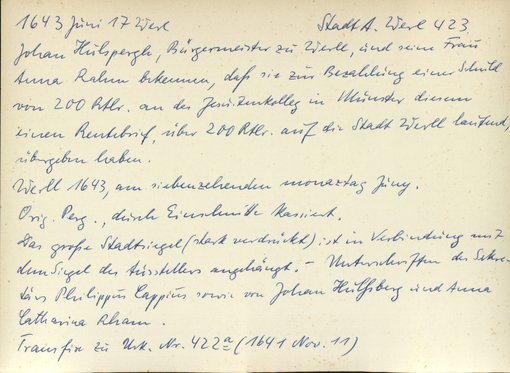 1643 Juni 17 Werl Stadt A. Werl 423
Johan Hulspergh, Bürgermeister zu Werll, und seine Frau
Anna Rahm bekennen, daß sie zur Bezahlung einer Schuld
von 200 Rtlr. an das Jesuitenkolleg in Münster diesem
einen Rentebrief, über 200 Rtlr. auf die Stadt Werll lautend,
übergeben haben.
Werll 1643, am siebenzehenden monaztag Juny.
Orig. Perg., durch Einschnitte kassiert.
Das große Stadtsiegel (stark verdrückt) ist in Verbindung mit
dem Siegel des Ausstellers angehängt. - Unterschriften des Sekre-
tärs Philippus Cappius sowie von Johan Hülfsberg und Anna
Catharina Rham.
Transfix zu Urk. Nr. 422a (1641 Nov. 11)